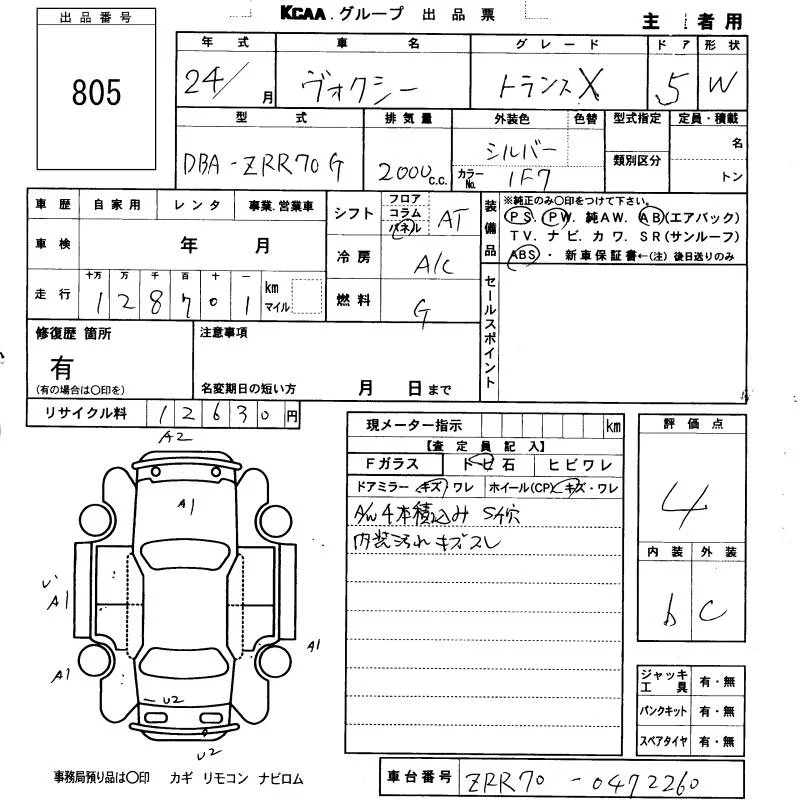 KCAA.グループ 出品票
主 者用
出品番号
805
年式 車名 グレード ドア 形状
24/ 月 ヴォクシー トランスX 5 W
型式 排気量 外装色 色替 型式指定 定員・積載
DBA-ZRR70G 2000 c.c. シルバー 名
カラーNo. 1F7 類別区分 トン
車歴 自家用 レンタ 事業.営業車
車検 年 月
走行 十万 万 千 百 十 一
128701 km マイル
シフト フロア コラム パネル AT
冷房 A/C
燃料 G
装備品 ※純正のみ〇印をつけて下さい。
PS. PW. 純AW. AB(エアバック)
TV. ナビ. カワ. SR(サンルーフ)
ABS・ 新車保証書←(注)後日送りのみ
セールスポイント
修復歴 箇所 注意事項
有
(有の場合は〇印を) 名変期日の短い方 月 日まで
リサイクル料 12630円
現メーター指示 km
【査定員記入】
Fガラス トビ石 ヒビワレ
ドアミラー キズ ワレ ホイール(CP) キズ・ワレ
A/W4本積込み S付穴
内装汚れ キズスレ
評価点
4
内装 外装
b C
A2
A1
A1
A1
A1
U2
U2
ジャッキ工具 有・無
パンクキット 有・無
スペアタイヤ 有・無
事務局預り品は〇印 カギ リモコン ナビロム
車台番号 ZRR70-0472260